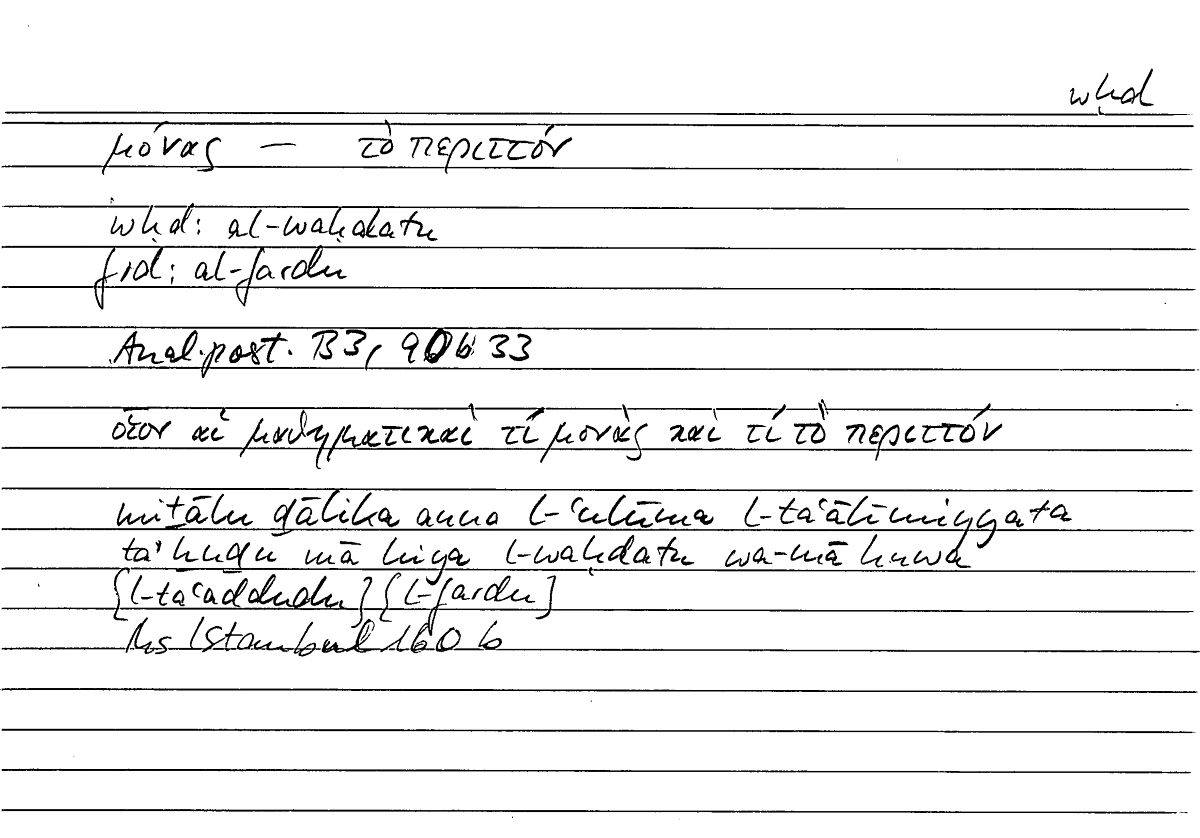 wḥd
μόνας — τὸ περιττόν
wḥd: al-waḥdatu
frd: al-fardu
Anal. post. B3, 90b 33
οἷον αἱ μαθηματικαὶ τί μονὰς καὶ τί τὸ περιττόν
miṯālu ḏālika anna l-ʿulūma l-taʿālīmiyyata
taʾḫuḏu mā hiya l-waḥdatu wa-mā huwa
[l-taʿaddudu] [l-fardu]
Ms Istanbul 160 b